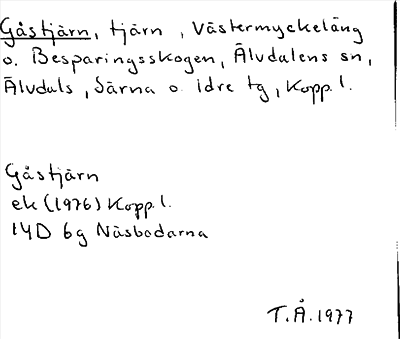 Gåstjärn, tjärn, Västermyckeläng
o. Besparingsskogen, Älvdalens sn,
Älvdals, Särna o Idre tg, Kopp. l.
Gåstjärn
ek (1976) Kopp. l.
14D 6g Näsbodarna
T.Å. 1977